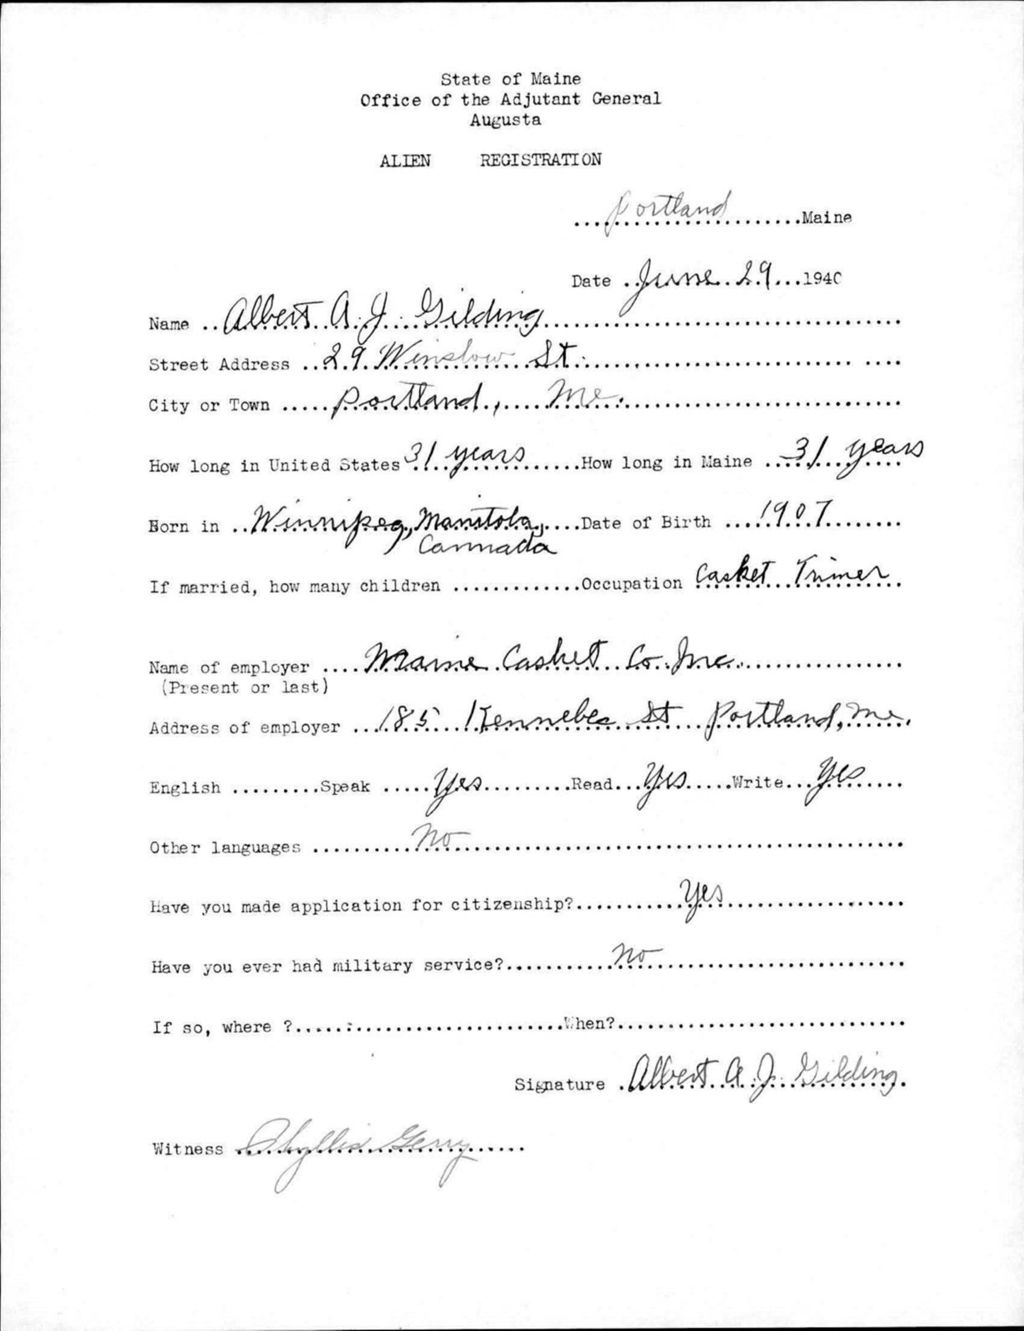 State of Maine
Office of the Adjutant General
Augusta
ALIEN REGISTRATION
Portland Maine
Date June 29 1940
Name Albert A. J. Gilding
Street Address 29 Winslow St.
City or Town Portland, Me.
How long in United States 31 years How long in Maine 31 years
Born in Winnipeg, Manitoba, Date of Birth 1907
Cannada
If married, how many children Occupation Casket Trimer
Name of employer Maine Casket Co. Inc.
(Present or last)
Address of employer 185 Kennebec St Portland, Me.
English Speak Yes Read Yes Write Yes
Other languages No
Have you made application for citizenship? Yes
Have you ever had military service? No
If so, where ? When?
Signature Albert A. J. Gilding.
Witness Phyllis Gerry